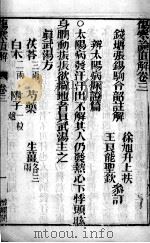 傷寒論直解卷三
錢塘張錫駒令韶註解
徐旭升上扶
王良能聖欽 參訂
辨太陽病脈證篇
○太陽病發汗汗出不解其人仍發熱心下悸頭眩
身瞤動振振欲擗地者真武湯主之
真武湯方
茯苓三兩 芍藥三兩 生薑三兩
白朮二兩 附子一枚